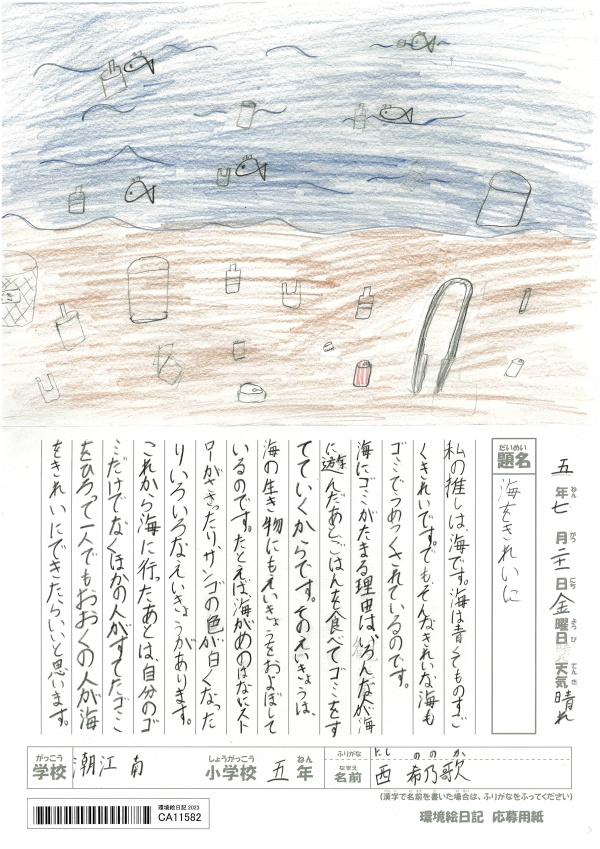 五年七月二十一日金曜日天気晴れ
ねん
がつ
にち
ようび
てんき
だいめい
題名
海をきれいに
私の推しは、海です。海は青くてものすご
くきれいです。でもそんなきれいな海も
ゴミでうめつくされているのです。
海にゴミがたまる理由は、いろんな人が海
に遊んだあと、ごはんを食べてゴミをす
てていくからです。そのえいきょうは、
海の生き物にもえいきょうをおよぼして
いるのです。たとえば、海がめのはなにスト
ローがささったり、サンゴの色が白くなった
りいろいろなえいきょうがあります。
これから海に行ったあとは、自分のゴ
ミだけでなくほかの人がすてたゴミ
をひろって一人でもおおくの人が海
をきれいにできたらいいと思います。
がっこう
学校
潮江南
しょうがっこう
小学校
五
ねん
年
ふりがな
にし ののか
なまえ
名前
西 希乃歌
(漢字で名前を書いた場合は、ふりがなをふってください)
環境絵日記 2023
CA11582
環境絵日記 応募用紙